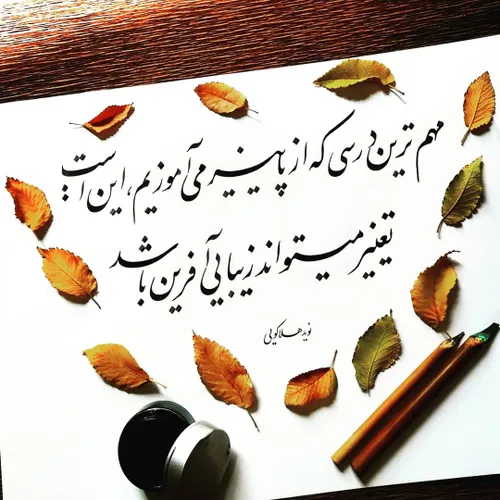 مهم ترین درسی که از پاییز می آموزیم، این است
تغییر میتواند زیبایی آفرین باشد
نوید هلاکویی